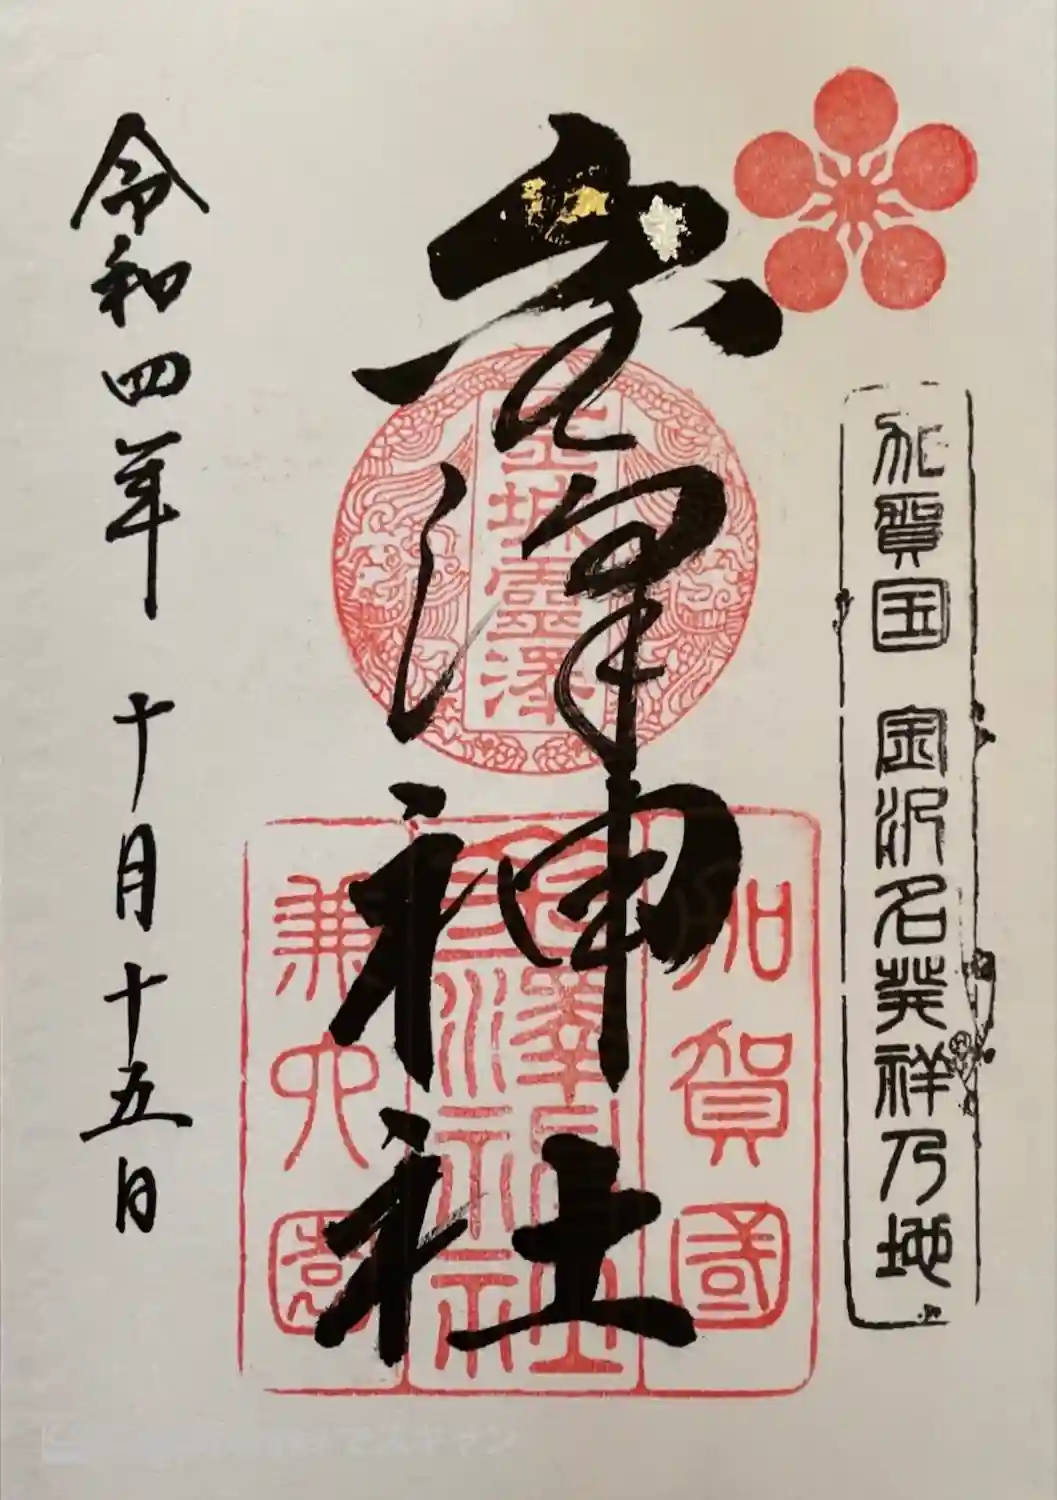 加賀国 金沢名発祥乃地
金澤神社
金城霊澤
加賀國
金澤神社
兼六園
令和四年 十月十五日